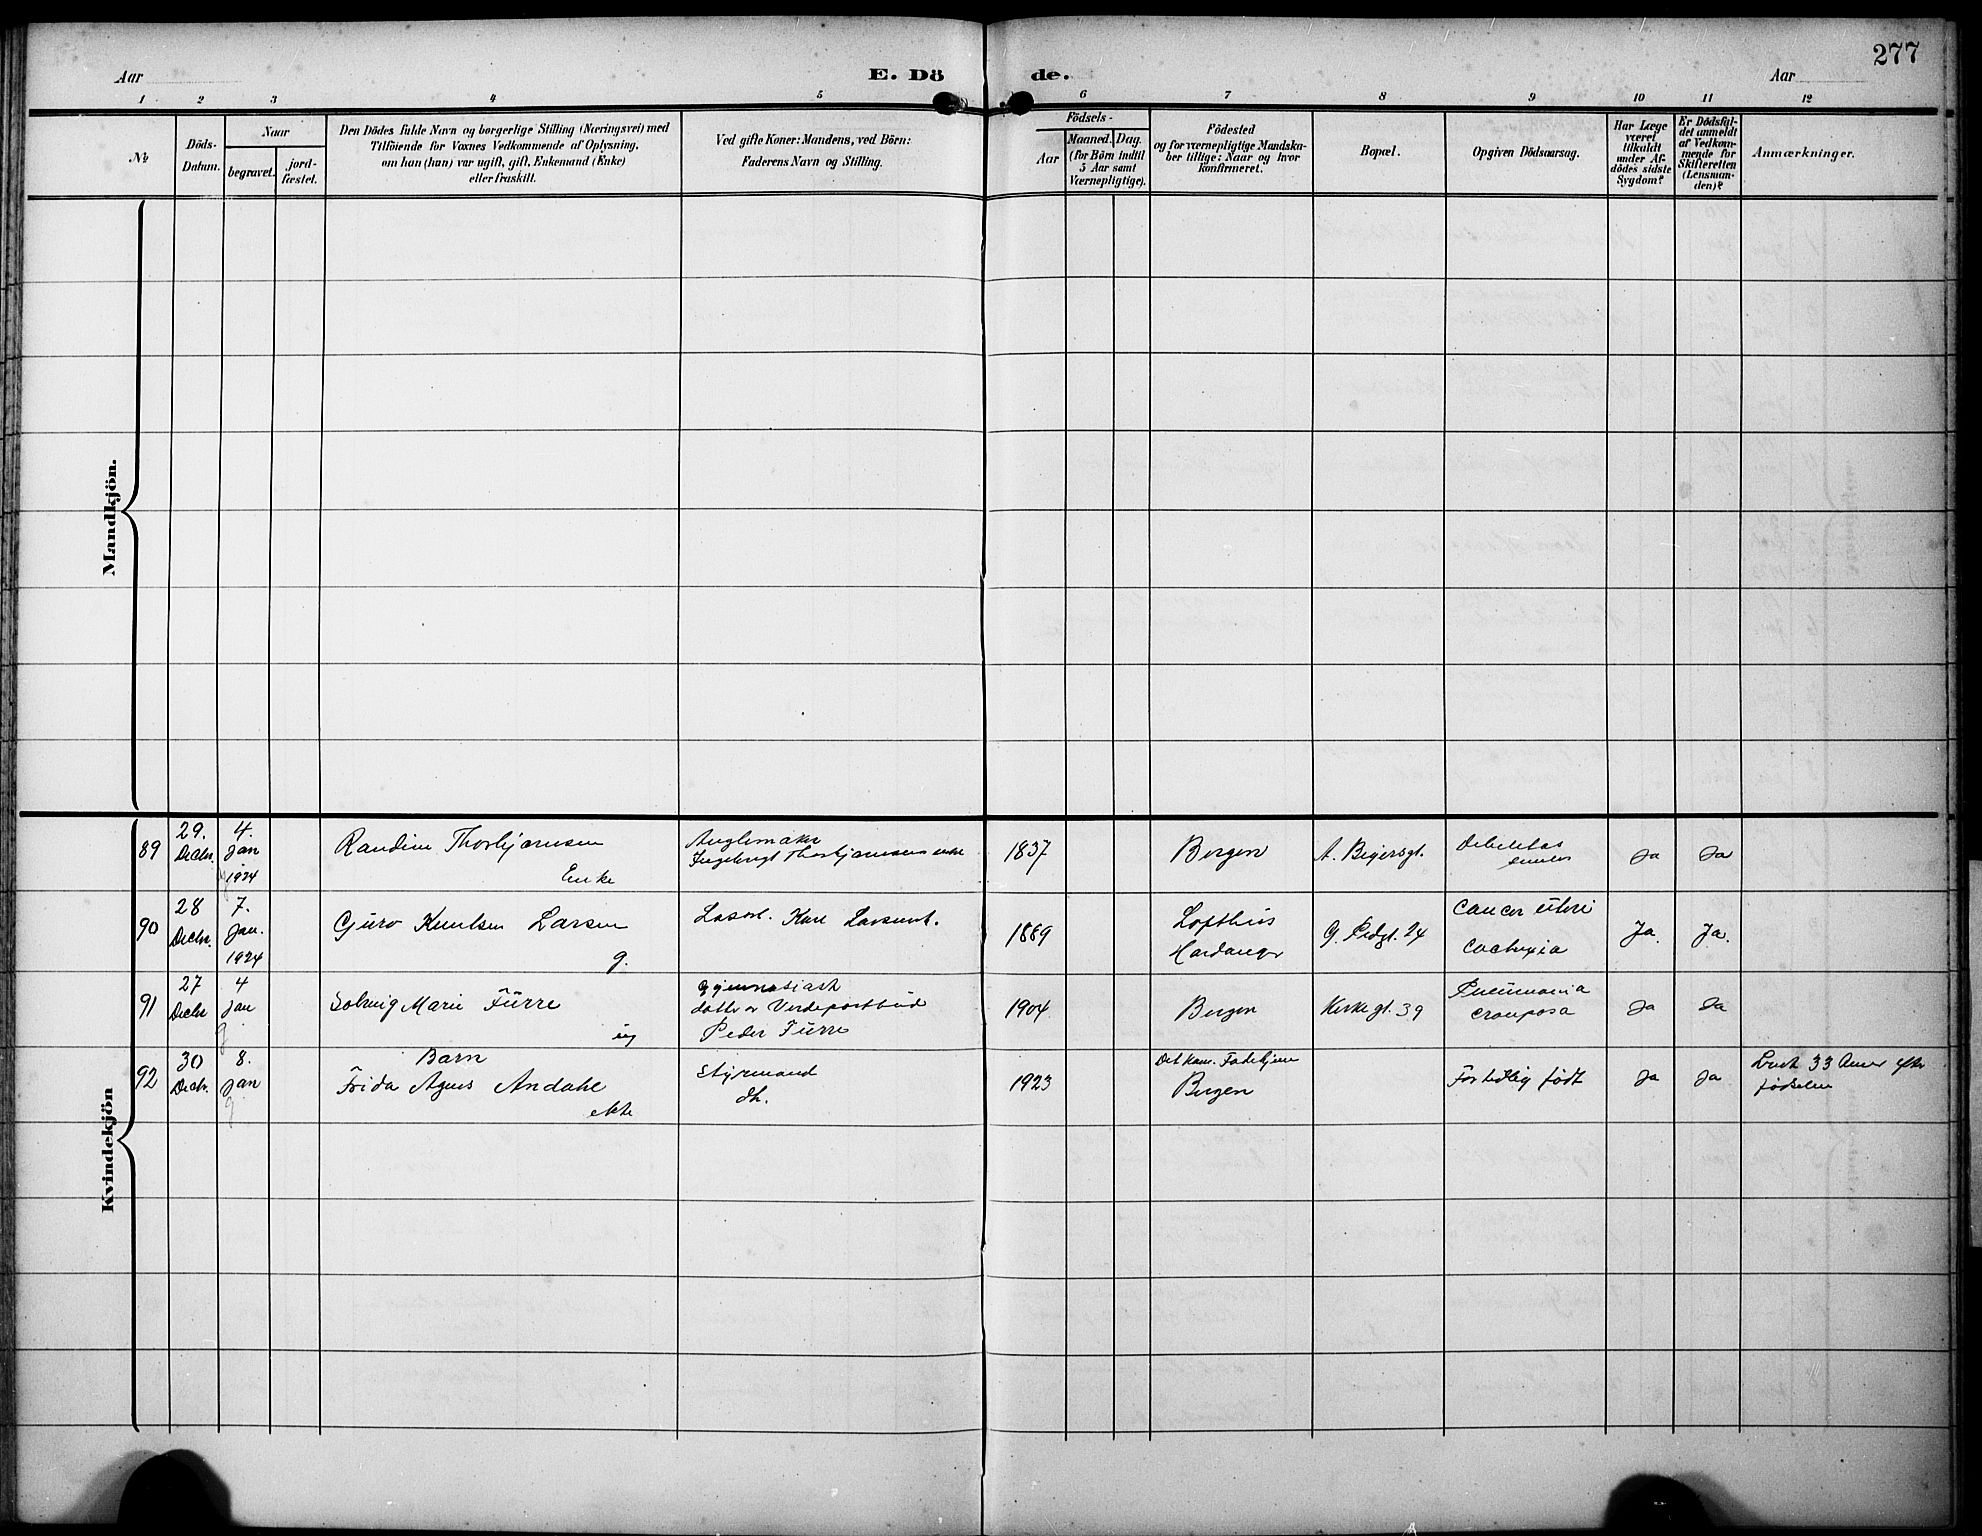 277
Aar
E. Dö
de.
Aar
1 2 3 4 5 6 7 8 9 10 11 12
No
Döds-
Datum.
Naar
begravet.
jord-
fæstet.
Den Dödes fulde Navn og borgerlige Stilling (Næringsvei) med
Tilföiende for Voxnes Vedkommende af Oplysning,
om han (hun) var ugift, gift, Enkemand (Enke)
eller fraskilt.
Ved gifte Koner: Mandens, ved Börn:
Faderens Navn og Stilling.
Födsels-
Aar
Maaned. Dag.
(for Börn indtil
5 Aar samt
Værnepligtige).
Födested
og for værnepligtige Mandska-
ber tillige: Naar og hvor
konfirmeret.
Bopæl.
Opgiven Dödsaarsag.
Har Læge
været
tilkaldt
under Af-
dödes sidste
Sygdom?
Er Dödsfal-
det anmeldt
af Vedkom-
mende for
Skifteretten
(Lensman-
den)?
Anmærkninger.
Mandkjön.
Kvindekjön
89
29.
Decbr.
4.
Jan
1924
Randine Thorbjørnsen
Enke
Ingebrigt Thorbjørnsens enke
1837
Bergen
A. Beyersgt.
Debilitas
senilis
Ja
Ja
90
28
Decbr.
7.
Jan.
1924
Guro Knutsen Larsen
g.
Karl
1889
Lofthus
Hardanger
24
Cancer uteri
Cachexia
Ja.
Ja.
91
27
Decbr
4
Jan
Solveig Marie Fürre
ug
Gymnasiast
datter av
Peder Fürre
1904
Bergen
Kirkegt. 39
Pneumonia
crouposa
Ja
Ja
92
30
Decbr.
8.
Jan
Barn
Frida Agnes Andahl
ekte
Styrmand
1923
Bergen
For tidlig født
Ja
Ja
33 timer efter
fødselen